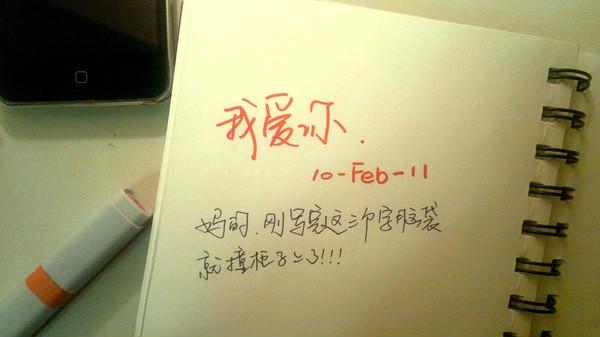 我爱你.
10-Feb-11
妈的.刚写完这三个字脑袋
就撞柜子上了!!!